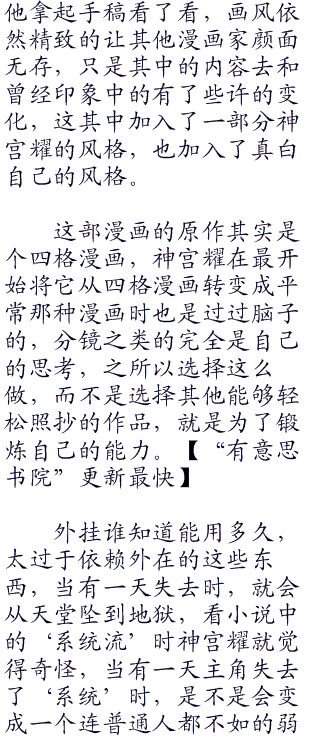 他拿起手稿看了看，画风依
然精致的让其他漫画家颜面
无存，只是其中的内容去和
曾经印象中的有了些许的变
化，这其中加入了一部分神
宫耀的风格，也加入了真白
自己的风格。
这部漫画的原作其实是
个四格漫画，神宫耀在最开
始将它从四格漫画转变成平
常那种漫画时也是过过脑子
的，分镜之类的完全是自己
的思考，之所以选择这么
做，而不是选择其他能够轻
松照抄的作品，就是为了锻
炼自己的能力。【“有意思
书院”更新最快】
外挂谁知道能用多久，
太过于依赖外在的这些东
西，当有一天失去时，就会
从天堂坠到地狱，看小说中
的‘系统流’时神宫耀就觉
得奇怪，当有一天主角失去
了‘系统’时，是不是会变
成一个连普通人都不如的弱